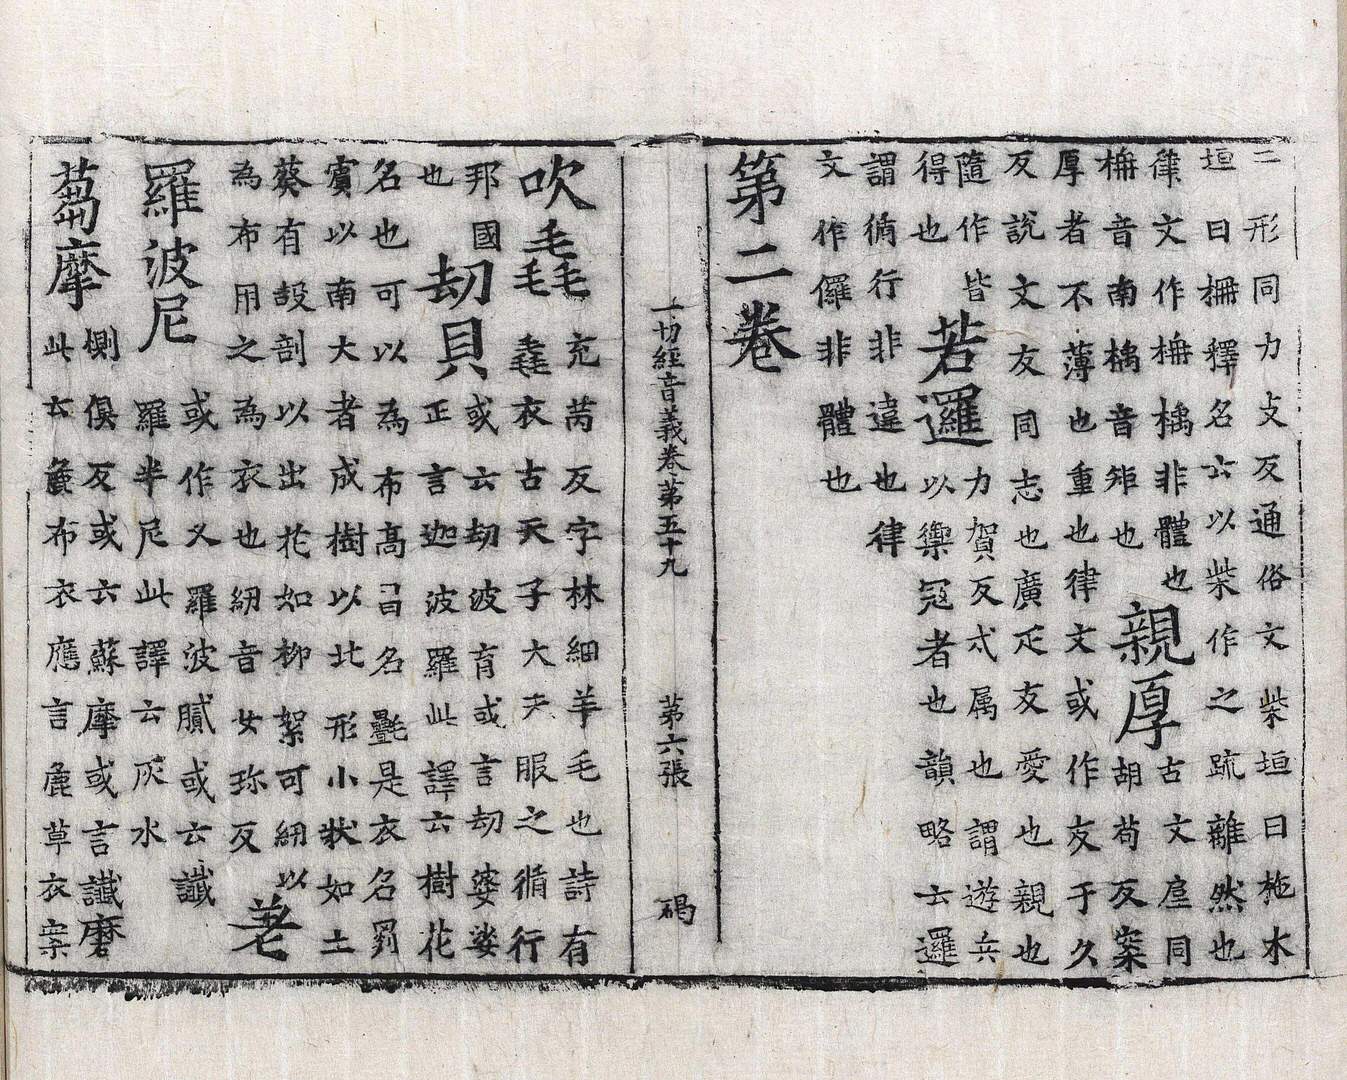 二形同力攴反通俗文柴垣曰杝木
垣曰柵釋名云以柴作之疏離然也
律文作柟楀非體也
柟音南楀音矩也
親厚
古文垕同
胡苟反案
厚者不薄也重也律文或作友于久
反說文友同志也廣疋友愛也親也
隨作皆
得也
若邏
力賀反弍属也謂遊兵
以禦冦者也韻略云邏
謂循行非違也律
文作儸非體也
第二卷
一切經音義卷第五十九 第六張 碣
吹毳
充芮反字林細羊毛也詩有
毳衣古天子大夫服之循行
邦國
也
劫貝
或云劫波育或言劫婆娑
正言迦波羅此譯云樹花
名也可以為布高昌名氎是衣名罽
賓以南大者成樹以北形小狀如土
葵有㲉剖以出花如柳絮可紉以
為布用之為衣也紉音女珍反
差
羅波尼
或作叉羅波膩或云讖
羅半尼此譯云灰水
蒭摩
惻俱反或云蘇摩或言讖磨
此云麁布衣應言麁草衣案